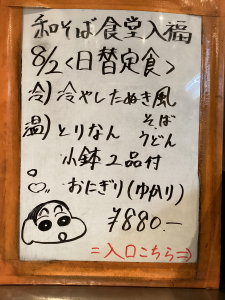 和そば食堂入福
8/2<日替定食>
冷)冷やしたぬき風
温)とりなん そば うどん
小鉢2品付
おにぎり(ゆかり)
¥880.-
=入口こちら⇒